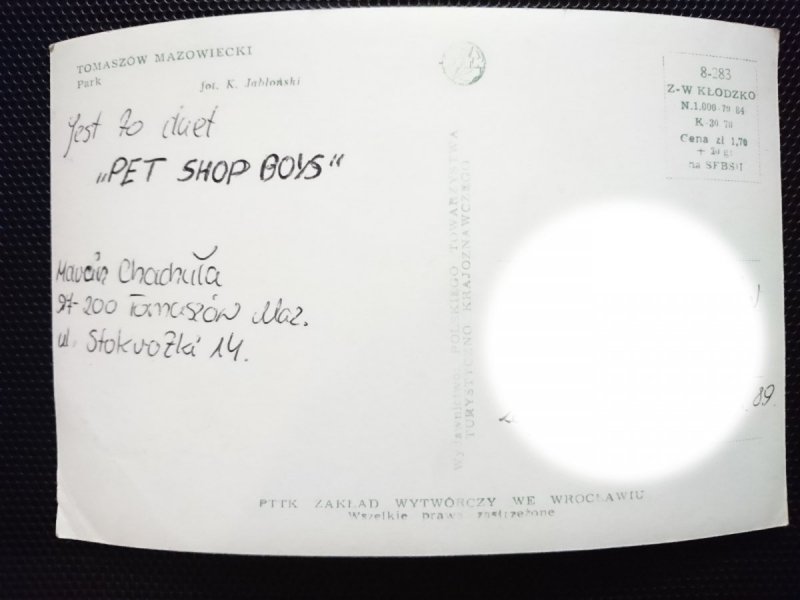 TOMASZÓW MAZOWIECKI
Park fot. K. Jabłoński
Jest to duet
„PET SHOP BOYS“
Marcin Chachuła
97-200 Tomaszów Maz.
ul. Stokrotki 14.
8-283
Z-W KŁODZKO
N.1.000-79 84
K-30 78
Cena zł 1,70
+ gr
na SFBSH
Wydawnictwo POLSKIEGO TOWARZYSTWA
TURYSTYCZNO KRAJOZNAWCZEGO
89
PTTK ZAKŁAD WYTWÓRCZY WE WROCŁAWIU
Wszelkie prawa zastrzeżone